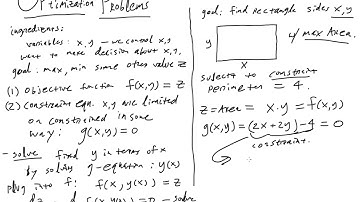 Optimization Problems
ingredients:
variables: x,y — we control x,y
want to make decision about x,y
goal: max, min some other value z
(1) objective function f(x,y) = z
(2) constraint eqn. x,y are limited
or constrained in some
way: g(x,y) = 0
- solve find y in terms of x
by solving g-equation: y(x)
plug into f: f(x, y(x)) = z
goal: find Rectangle sides x,y
w/ max Area.
y
x
subject to constraint
perimeter = 4.
z = Area = x·y = f(x,y)
g(x,y) = (2x+2y) - 4 = 0
constraint.